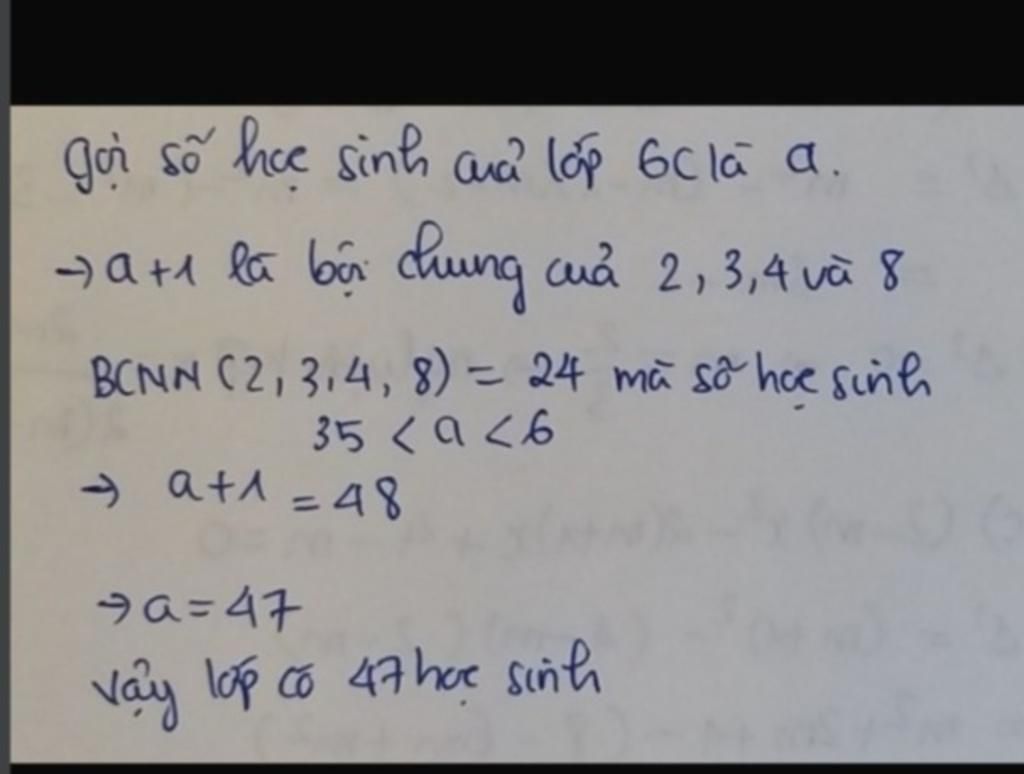 gọi số học sinh của lớp 6C là a.
→ a+1 là bội chung của 2, 3, 4 và 8
BCNN (2, 3, 4, 8) = 24 mà số học sinh
35 < a < 6
→ a+1 = 48
→ a = 47
vậy lớp có 47 học sinh